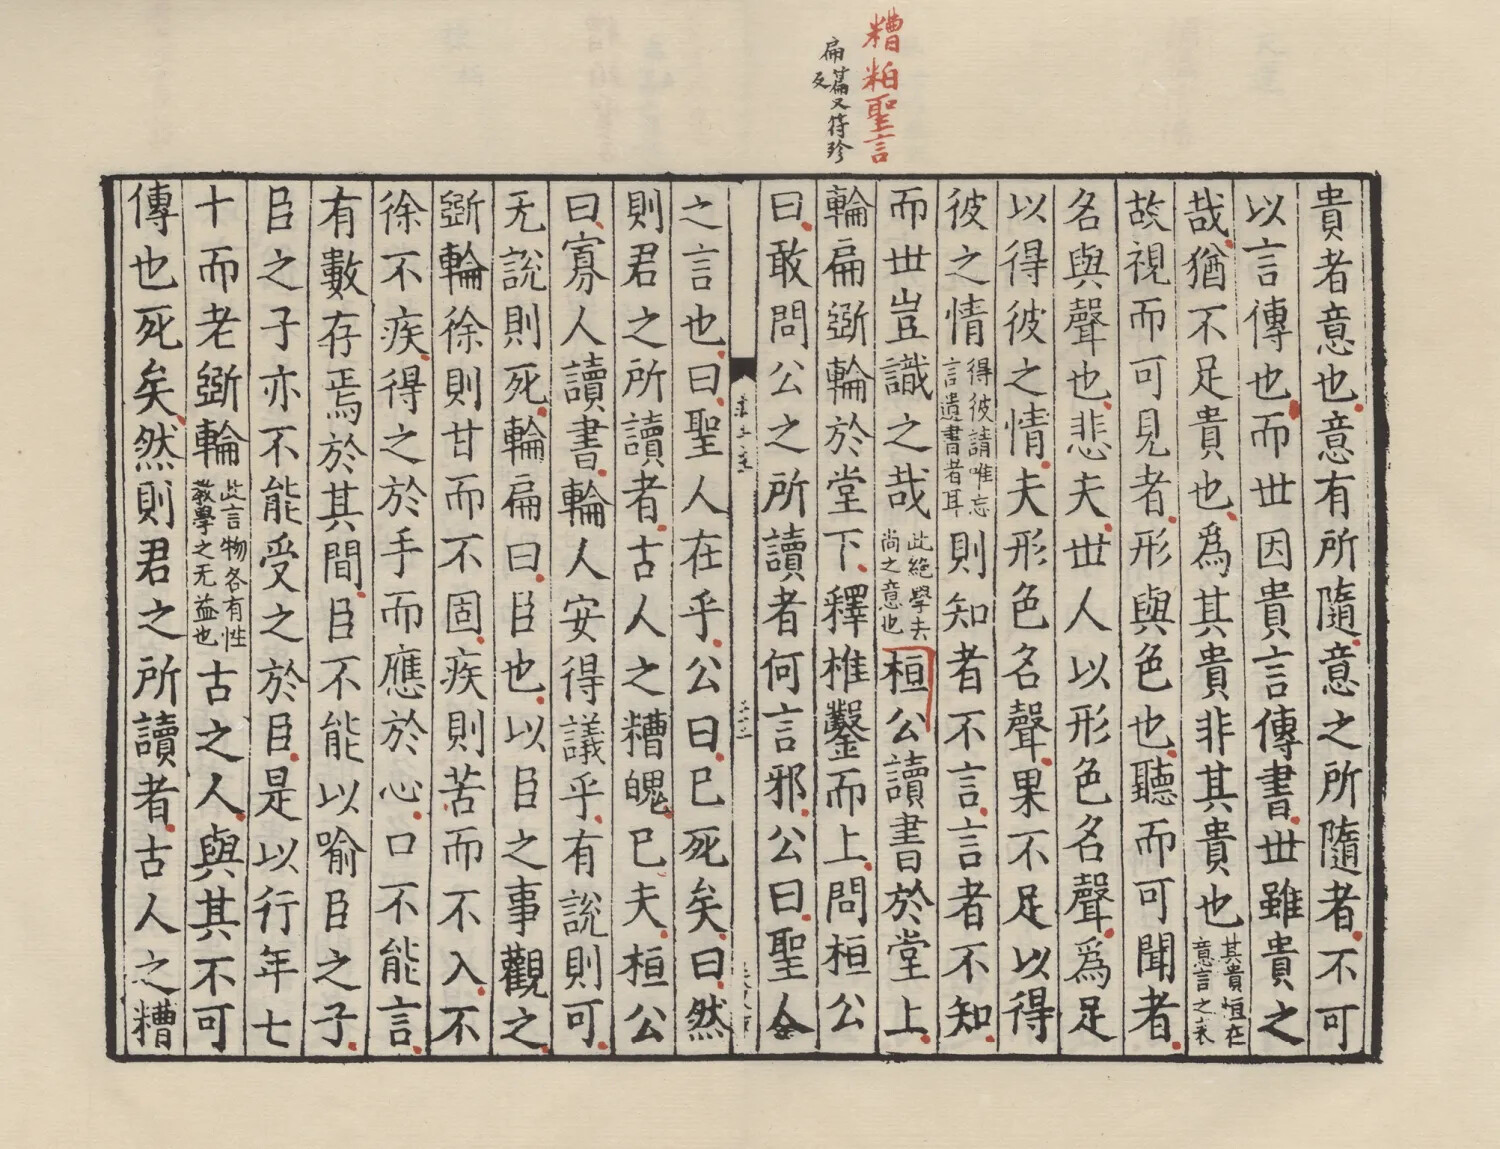 糟粕聖言
扁音篇又符珍
反
貴者意也意有所隨意之所隨者不可
以言傳也而世因貴言傳書世雖貴之
哉猶不足貴也爲其貴非其貴也其貴恒在意言之表
故視而可見者形與色也聽而可聞者
名與聲也悲夫世人以形色名聲爲足
以得彼之情夫形色名聲果不足以得
彼之情得彼請唯忘言遺書者耳則知者不言言者不知
而世豈識之哉此絶學去尚之意也桓公讀書於堂上
輪扁斲輪於堂下釋椎鑿而上問桓公
曰敢問公之所讀者何言邪公曰聖人
之言也曰聖人在乎公曰已死矣曰然
則君之所讀者古人之糟魄已夫桓公
曰寡人讀書輪人安得議乎有說則可
无說則死輪扁曰臣也以臣之事觀之
斲輪徐則甘而不固疾則苦而不入不
徐不疾得之於手而應於心口不能言
有數存焉於其間臣不能以喻臣之子
臣之子亦不能受之於臣是以行年七
十而老斲輪此言物各有性教學之无益也古之人與其不可
傳也死矣然則君之所讀者古人之糟